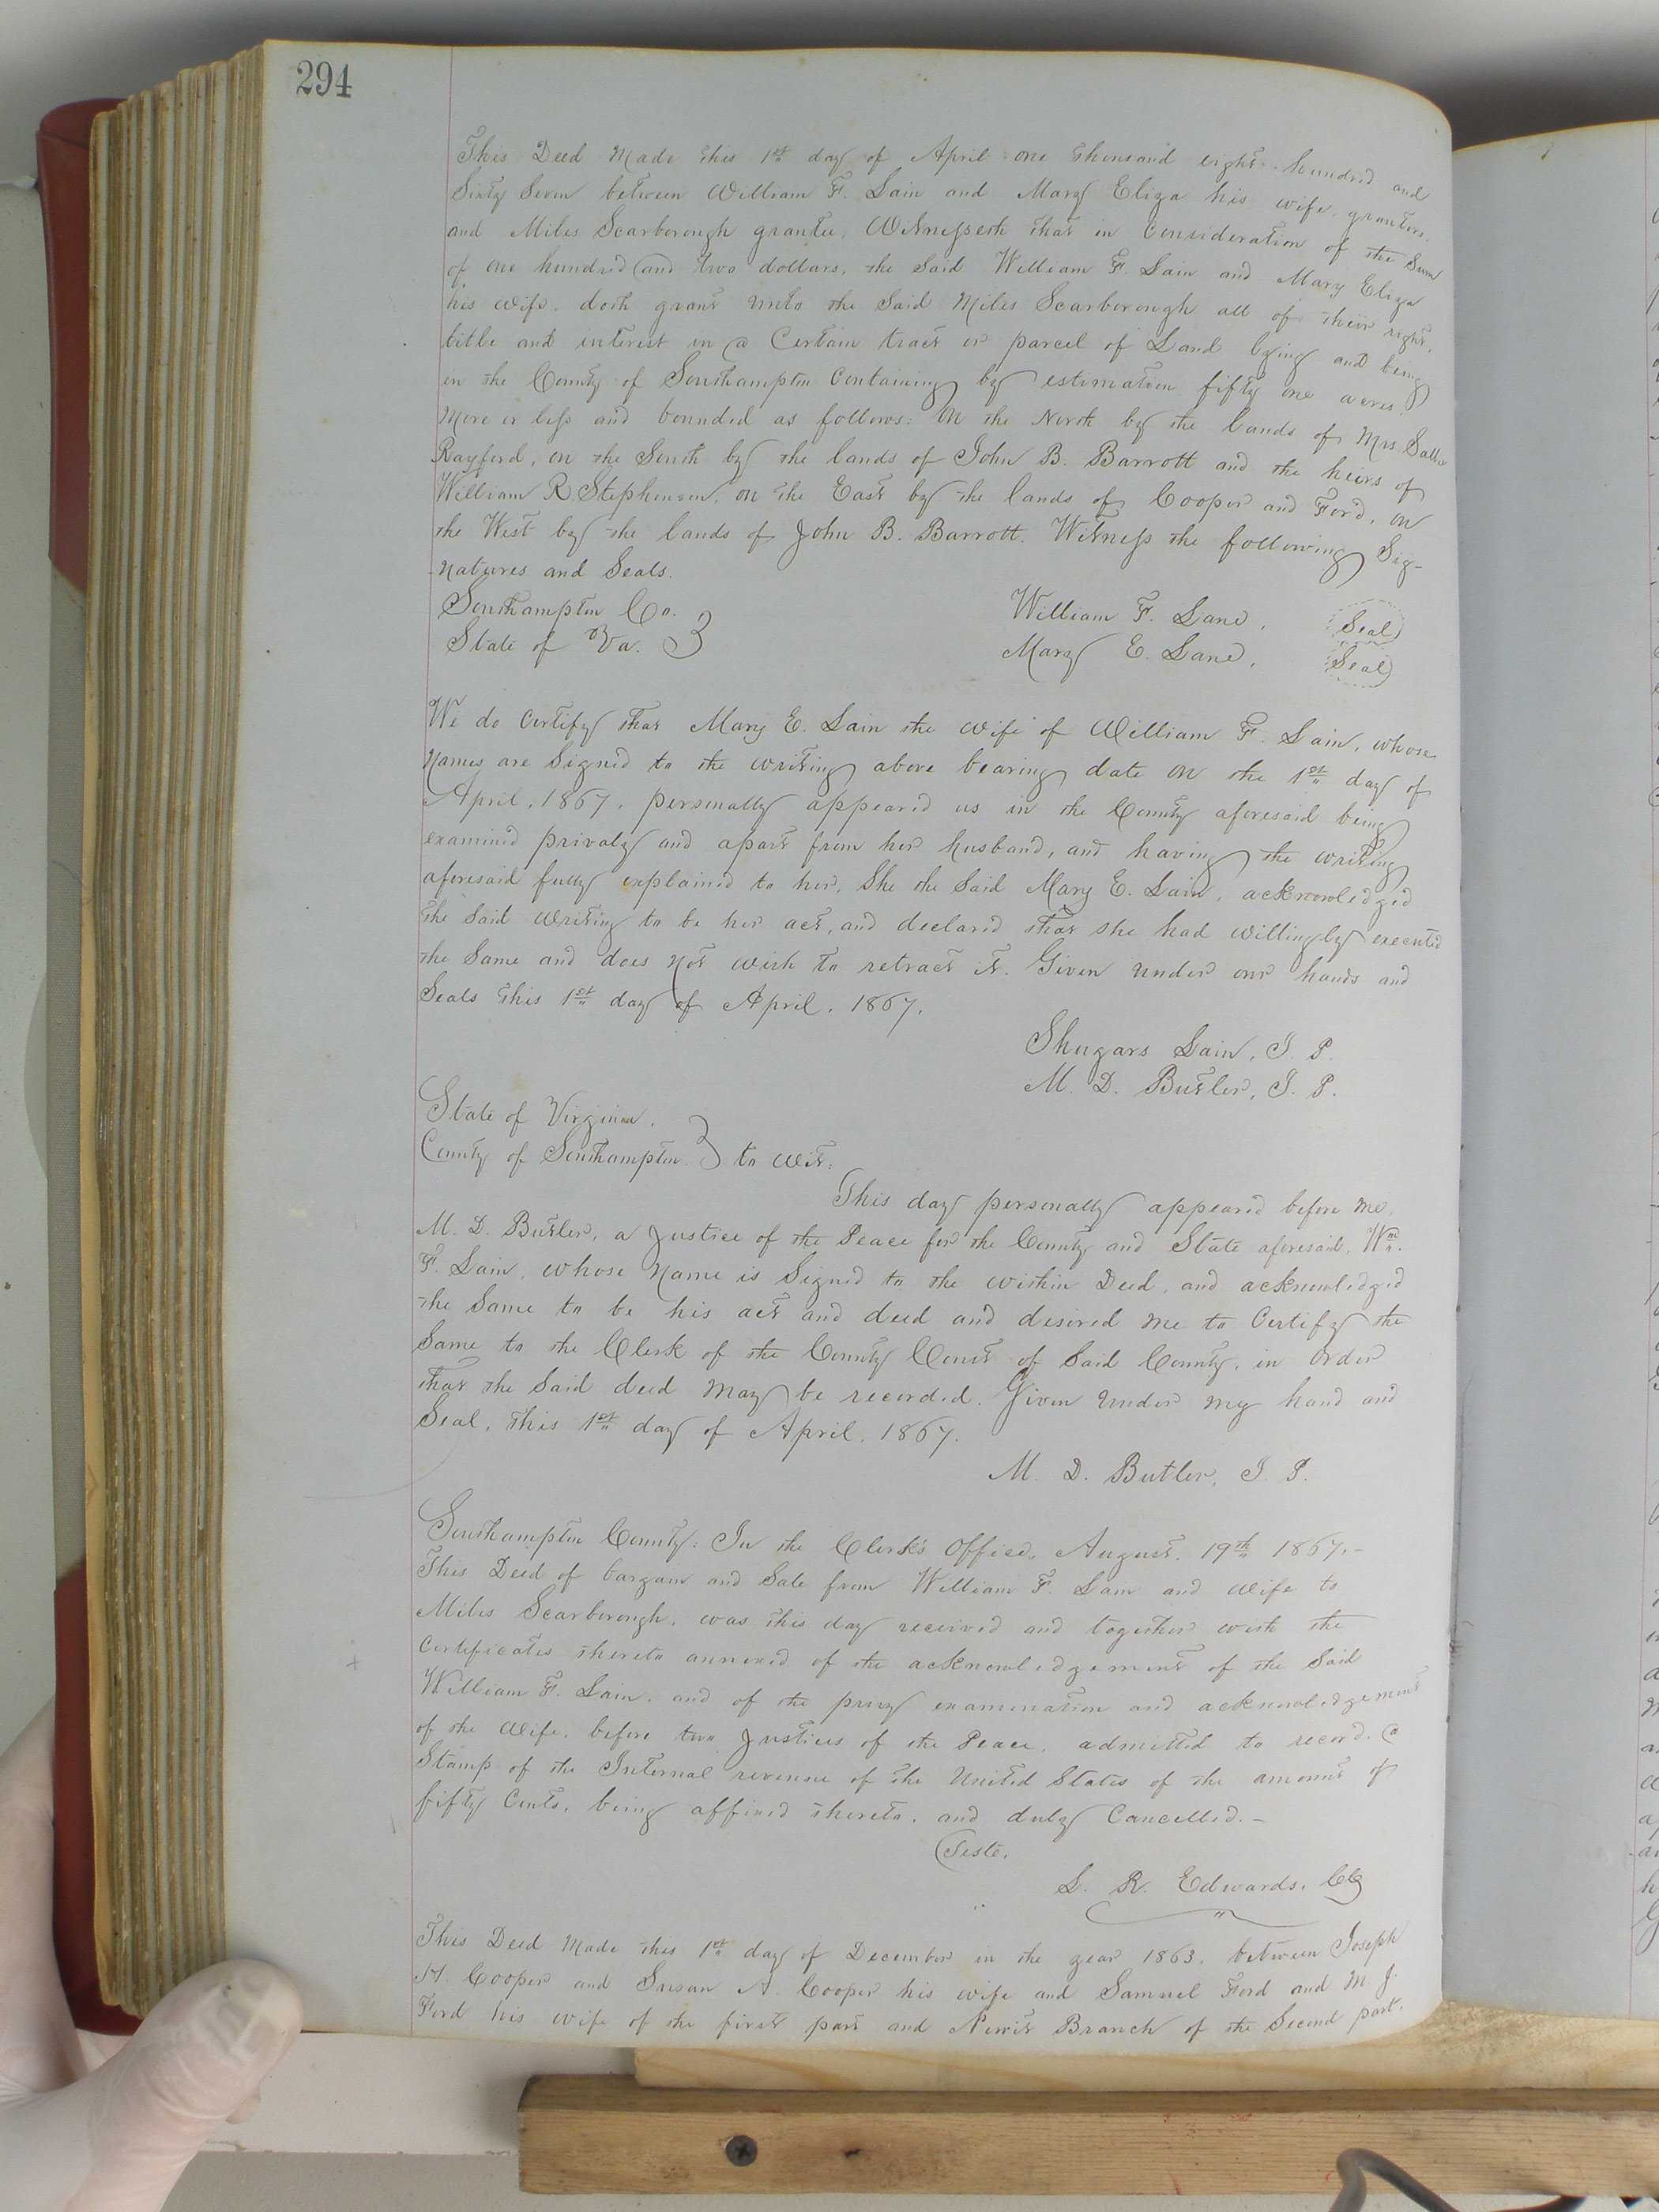 294
This Deed Made this 1st day of April one thousand eight hundred and
Sixty Seven between William F. Lain and Mary Eliza his wife, grantors,
and Miles Scarborough grantee, Witnesseth that in Consideration of the Sum
of one hundred and two dollars, the Said William F. Lain and Mary Eliza
his wife, doth grant unto the Said Miles Scarborough all of their right,
title and interest in a Certain tract or parcel of Land lying and being
in the County of Southampton Containing by estimation fifty one acres,
More or less and bounded as follows: On the North by the lands of Mrs. Sallie
Rayford, on the South by the lands of John B. Barrott and the heirs of
William R Stephenson, on the East by the lands of Cooper and Ford, on
the West by the lands of John B. Barrott. Witness the following Sig-
-natures and Seals.
Southampton Co.
State of Va.
William F. Lane, Seal
Mary E. Lane, Seal
We do Certify that Mary E. Lain the wife of William F. Lain, whose
Names are Signed to the writing above bearing date on the 1st day of
April, 1867, personally appeared us in the County aforesaid being
examined privaly and apart from her husband, and having the writing
aforesaid fully explained to her, She the Said Mary E. Lain, acknowledged
the Said writing to be her act, and declared that she had willingly executed
the Same and does not wish to retract it. Given under our hands and
Seals this 1st day of April, 1867.
Shugars Lain, J. P.
M. D. Butler, J. P.
State of Virginia,
County of Southampton. to wit:
This day personally appeared before me,
M. D. Butler, a Justice of the Peace for the County and State aforesaid, Wm.
F. Lain, whose Name is Signed to the within Deed, and acknowledged
the Same to be his act and deed and desired me to Certify the
Same to the Clerk of the County Court of Said County, in order
that the Said deed May be recorded. Given under my hand and
Seal, this 1st day of April, 1867.
M. D. Butler, J. P.
Southampton County: In the Clerk's Office, August, 19th 1867.-
This Deed of bargain and Sale from William F. Lain and wife to
Miles Scarborough, was this day received and together with the
Certificates thereto annexed of the acknowledgement of the Said
William F. Lain, and of the privy examination and acknowledgement
of the wife, before two Justices of the Peace, admitted to record, a
Stamp of the Internal revenue of the United States of the amount of
fifty Cents, being affixed thereto, and duly Cancelled.-
Teste,
L. R. Edwards, Clk
This Deed Made this 1st day of December in the year 1863, between Joseph
H. Cooper and Susan A. Cooper his wife and Samuel Ford and M. J.
Ford his wife of the first part and Newit Branch of the Second part,